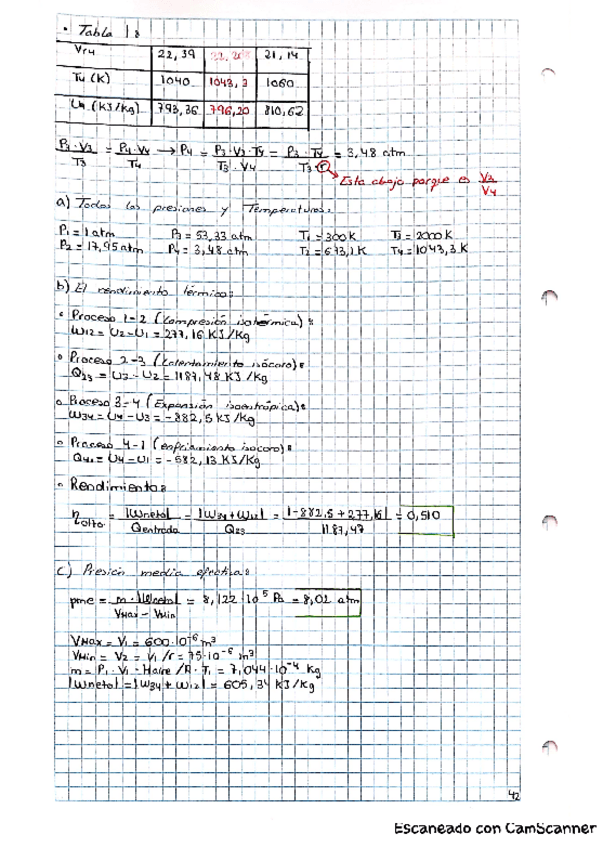 • Tabla 1:
Vr4 22,39 21,14
T4 (K) 1040 1043,3 1060
U4 (KJ/Kg) 793,36 796,20 810,62
P3·V3/T3 = P4·V4/T4 → P4 = P3·V3·T4/T3·V4 = P3·T4/T3·r = 3,48 atm
Esta abajo porque es V3/V4
a) Todas las presiones y Temperaturas:
P1 = 1 atm P3 = 53,33 atm T1 = 300K T3 = 2000K
P2 = 17,95 atm P4 = 3,48 atm T2 = 673,1 K T4 = 1043,3K
b) El rendimiento térmico:
• Proceso 1-2 (Compresión isotérmica):
W12 = U2-U1 = 277,16 KJ/Kg
• Proceso 2-3 (Calentamiento isócoro):
Q23 = U3-U2 = 1187,48 KJ/Kg
• Proceso 3-4 (Expansión isoentrópica):
W34 = U4-U3 = -882,5 KJ/Kg
• Proceso 4-1 (enfriamiento isócoro):
Q41 = U4-U1 = -582,13 KJ/Kg
• Rendimiento:
ηotto = |Wneto|/Qentrada = |W34+W12|/Q23 = |-882,5+277,16|/1187,47 = 0,510
c) Presión media efectiva:
pme = m·|Wneto|/VMax-VMin = 8,122·10^5 Pa = 8,02 atm
VMax = V1 = 600·10^-6 m³
VMin = V2 = V1/r = 75·10^-6 m³
m = P1·V1·Maire/R·T1 = 7,044·10^-4 Kg
|Wneto| = |W34+W12| = 605,34 KJ/Kg
42
Escaneado con CamScanner